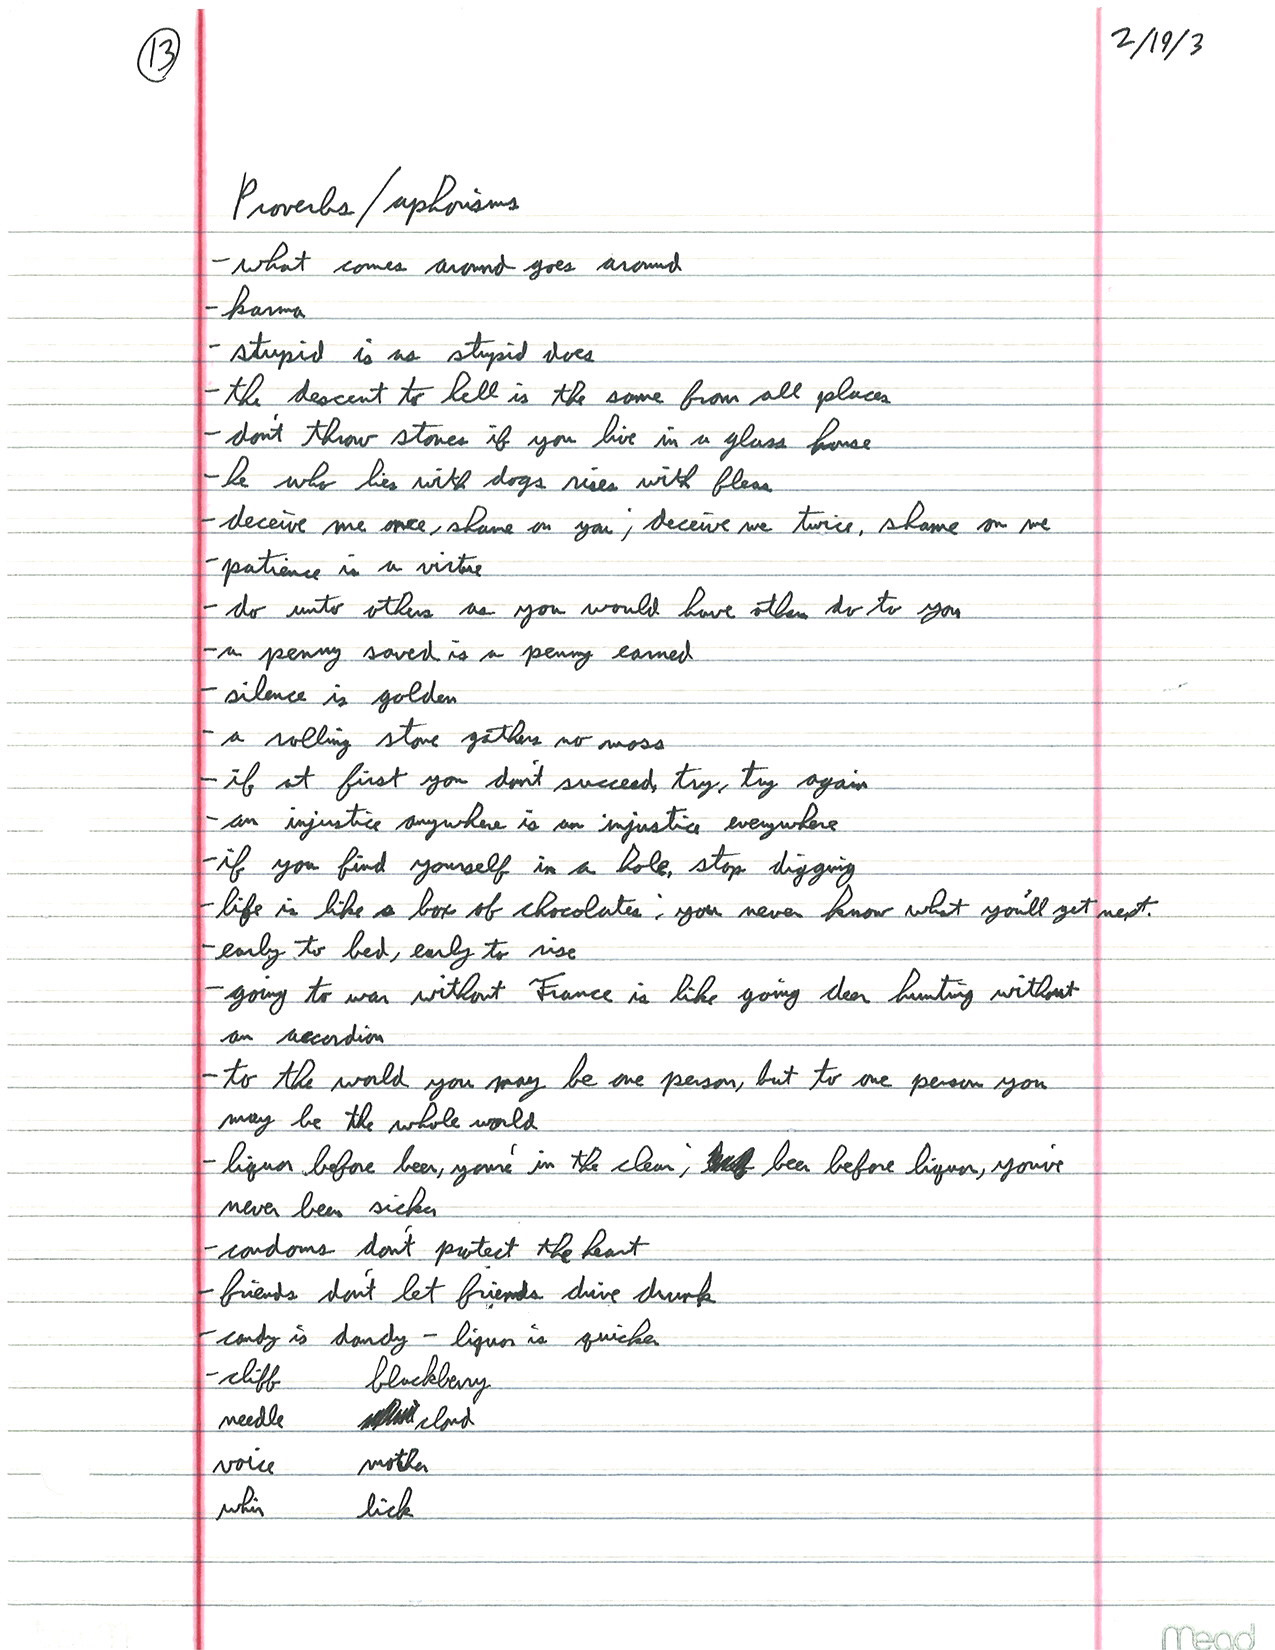 13 2/19/3
Proverbs/aphorisms
- what comes around goes around
- karma
- stupid is as stupid does
- the descent to hell is the same from all places
- don't throw stones if you live in a glass house
- he who lies with dogs rises with fleas
- deceive me once, shame on you; deceive me twice, shame on me
- patience is a virtue
- do unto others as you would have others do to you
- a penny saved is a penny earned
- silence is golden
- a rolling stone gathers no moss
- if at first you don't succeed, try, try again
- an injustice anywhere is an injustice everywhere
- if you find yourself in a hole, stop digging
- life is like a box of chocolates; you never know what you'll get next.
- early to bed, early to rise
- going to war without France is like going deer hunting without
an accordion
- to the world you may be one person, but to one person you
may be the whole world
- liquor before beer, you're in the clear; beer before liquor, you've
never been sicker
- condoms don't protect the heart
- friends don't let friends drive drunk
- candy is dandy - liquor is quicker
- cliff blackberry
needle cloud
voice mother
whir lick
Mead